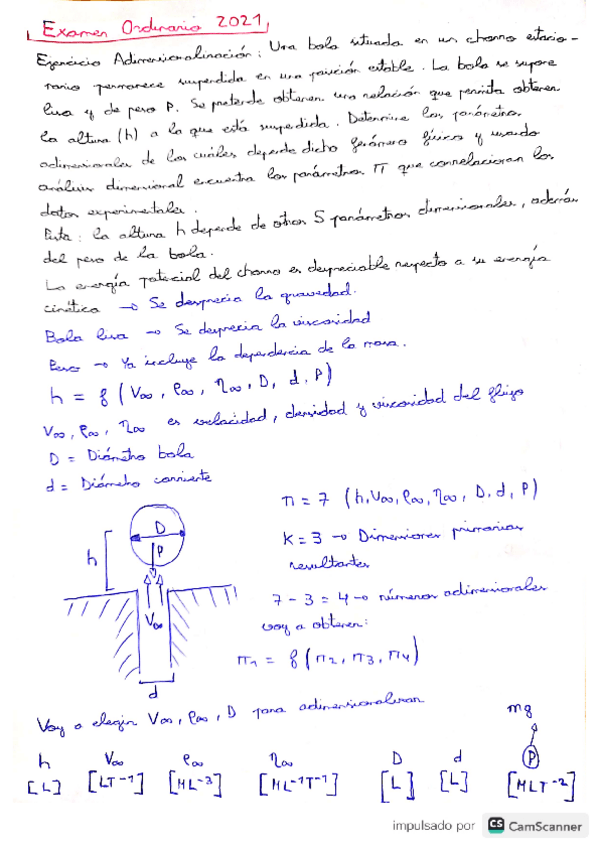 Examen Ordinario 2021
Ejercicio Adimensionalización: Una bola situada en un chorro estacio-
nario permanece suspendida en una posición estable. La bola se supone
lisa y de peso P. Se pretende obtener una relación que permita obtener
la altura (h) a la que está suspendida. Determine los parámetros
adimensionales de los cuales depende dicho fenómeno físico y usando
análisis dimensional encuentra los parámetros Π que correlacionan los
datos experimentales.
Pista: la altura h depende de otros 5 parámetros dimensionales, además
del peso de la bola.
La energía potencial del chorro es despreciable respecto a su energía
cinética → Se desprecia la gravedad.
Bola lisa → Se desprecia la viscosidad
Peso → Ya incluye la dependencia de la masa.
h = f (V∞, ρ∞, η∞, D, d, P)
V∞, ρ∞, η∞ es velocidad, densidad y viscosidad del flujo
D = Diámetro bola
d = Diámetro corriente
n = 7 (h, V∞, ρ∞, η∞, D, d, P)
K = 3 → Dimensiones primarias
resultantes
7 - 3 = 4 → números adimensionales
voy a obtener:
Π1 = f (Π2, Π3, Π4)
D
P
h
V∞
d
Voy a elegir V∞, ρ∞, D para adimensionalizar
mg
h V∞ ρ∞ η∞ D d P
[L] [LT⁻¹] [ML⁻³] [ML⁻¹T⁻¹] [L] [L] [MLT⁻²]
impulsado por CS CamScanner